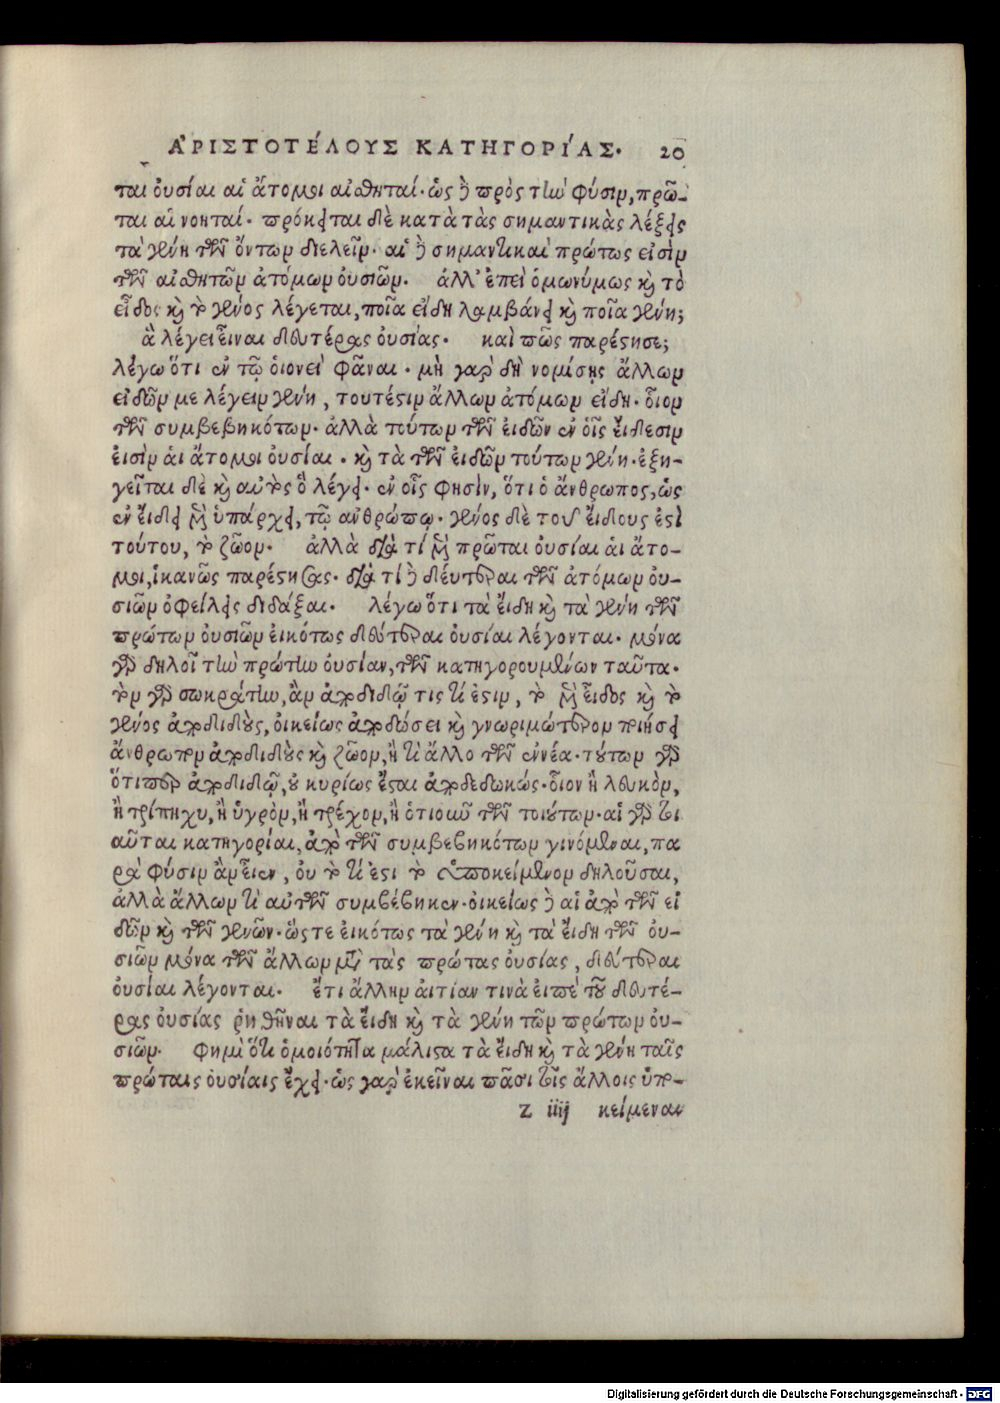 ἈΡΙΣΤΟΤΈΛΟΥΣ ΚΑΤΗΓΟΡΊΑΣ. 20
ται οὐσίαι αἱ ἄτομοι αἰσθηταί. ὡς δὲ πρὸς τὴν φύσιν, πρῶ-
ται αἱ νοηταί. πρόκειται δὲ κατὰ τὰς σημαντικὰς λέξεις
τὰ γένη τῶν ὄντων διελεῖν. αἱ δὲ σημαντικαὶ πρώτως εἰσὶν
τῶν αἰσθητῶν ἀτόμων οὐσιῶν. ἀλλ' ἐπεὶ ὁμωνύμως καὶ τὸ
εἶδος καὶ τὸ γένος λέγεται, ποῖα εἴδη λαμβάνει καὶ ποῖα γένη;
ἃ λέγει εἶναι δευτέρας οὐσίας. καὶ πῶς παρέστησε;
λέγω ὅτι ἐν τῷ ὁιονεὶ φᾶναι. μὴ γὰρ δὴ νομίσῃς ἄλλων
εἰδῶν με λέγειν γένη, τουτέστιν ἄλλων ἀτόμων εἴδη. ὅιον
τῶν συμβεβηκότων. ἀλλὰ τούτων τῶν ἐιδῶν ἐν ὁῖς ἔιδεσιν
ἐισὶν ἁι ἄτομοι ὀυσίαι. καὶ τὰ τῶν ἐιδῶν τούτων γένη. ἐξη-
γεῖται δὲ καὶ αὐτὸς ὃ λέγει. ἐν οἷς φησὶν, ὅτι ὁ ἄνθρωπος, ὡς
ἐν ἔιδει μὲν ὑπάρχει, τῷ ἀνθρώπῳ. γένος δὲ τοῦ ἔιδους ἐστὶ
τούτου, τὸ ζῶον. ἀλλὰ διὰ τί μὲν πρῶται ὀυσίαι ἁι ἄτο-
μοι, ἱκανῶς παρέστησας. διὰ τί δὲ δέυτεραι τῶν ἀτόμων ὀυ-
σιῶν ὀφείλεις διδάξαι. λέγω ὅτι τὰ ἔιδη καὶ τὰ γένη τῶν
πρώτων ὀυσιῶν ἐικότως δεύτεραι ὀυσίαι λέγονται. μόνα
γὰρ δηλοῖ τὴν πρώτην ὀυσίαν, τῶν κατηγορουμένων ταῦτα.
τὸν γὰρ σωκράτην, ἂν ἀποδιδῷ τις τί ἐστιν, τὸ μὲν εἶδος καὶ τὸ
γένος ἀποδιδοὺς, ὀικείως ἀποδώσει καὶ γνωριμώτερον ποιήσει
ἄνθρωπον ἀποδιδοὺς καὶ ζῶον, ἢ τὶ ἄλλο τῶν ἐννέα. τούτων γὰρ
ὅτιπερ ἀποδιδῷ, οὐ κυρίως ἔσται ἀποδεδωκώς. ὅιον ἢ λευκὸν,
ἢ τρίπηχυ, ἢ ὑγρὸν, ἢ τρέχον, ἢ ὁτιοῦν τῶν τοιούτων. αἱ γὰρ τοι
αῦται κατηγορίαι, ἀπὸ τῶν συμβεβηκότων γινόμεναι, πα
ρὰ φύσιν ἂν εἶεν, ὀυ τὸ τί ἐστι τὸ ὑποκείμενον δηλοῦσαι,
ἀλλὰ ἄλλων τὶ αὐτῶν συμβέβηκεν. ὀικείως δὲ αἱ ἀπὸ τῶν εἰ
δῶν καὶ τῶν γενῶν. ὥστε ἐικότως τὰ γένη καὶ τὰ ἔιδη τῶν ὀυ-
σιῶν μόνα τῶν ἄλλων μετὰ τὰς πρώτας ὀυσίας, δεύτεραι
ὀυσίαι λέγονται. ἔτι ἄλλην ἀιτίαν τινὰ ἐιπὲ τοῦ δευτέ-
ρας ὀυσίας ῥηθῆναι τὰ ἔιδη καὶ τὰ γένη τῶν πρώτων ὀυ-
σιῶν. φημὶ ὅτι ὁμοιότητα μάλιστα τὰ ἔιδη καὶ τὰ γένη ταῖς
πρώταις ὀυσίαις ἔχει. ὡς γὰρ ἐκεῖναι πᾶσι τοῖς ἄλλοις ὑπο-
z iiij κείμεναι
Digitalisierung gefördert durch die Deutsche Forschungsgemeinschaft - DFG